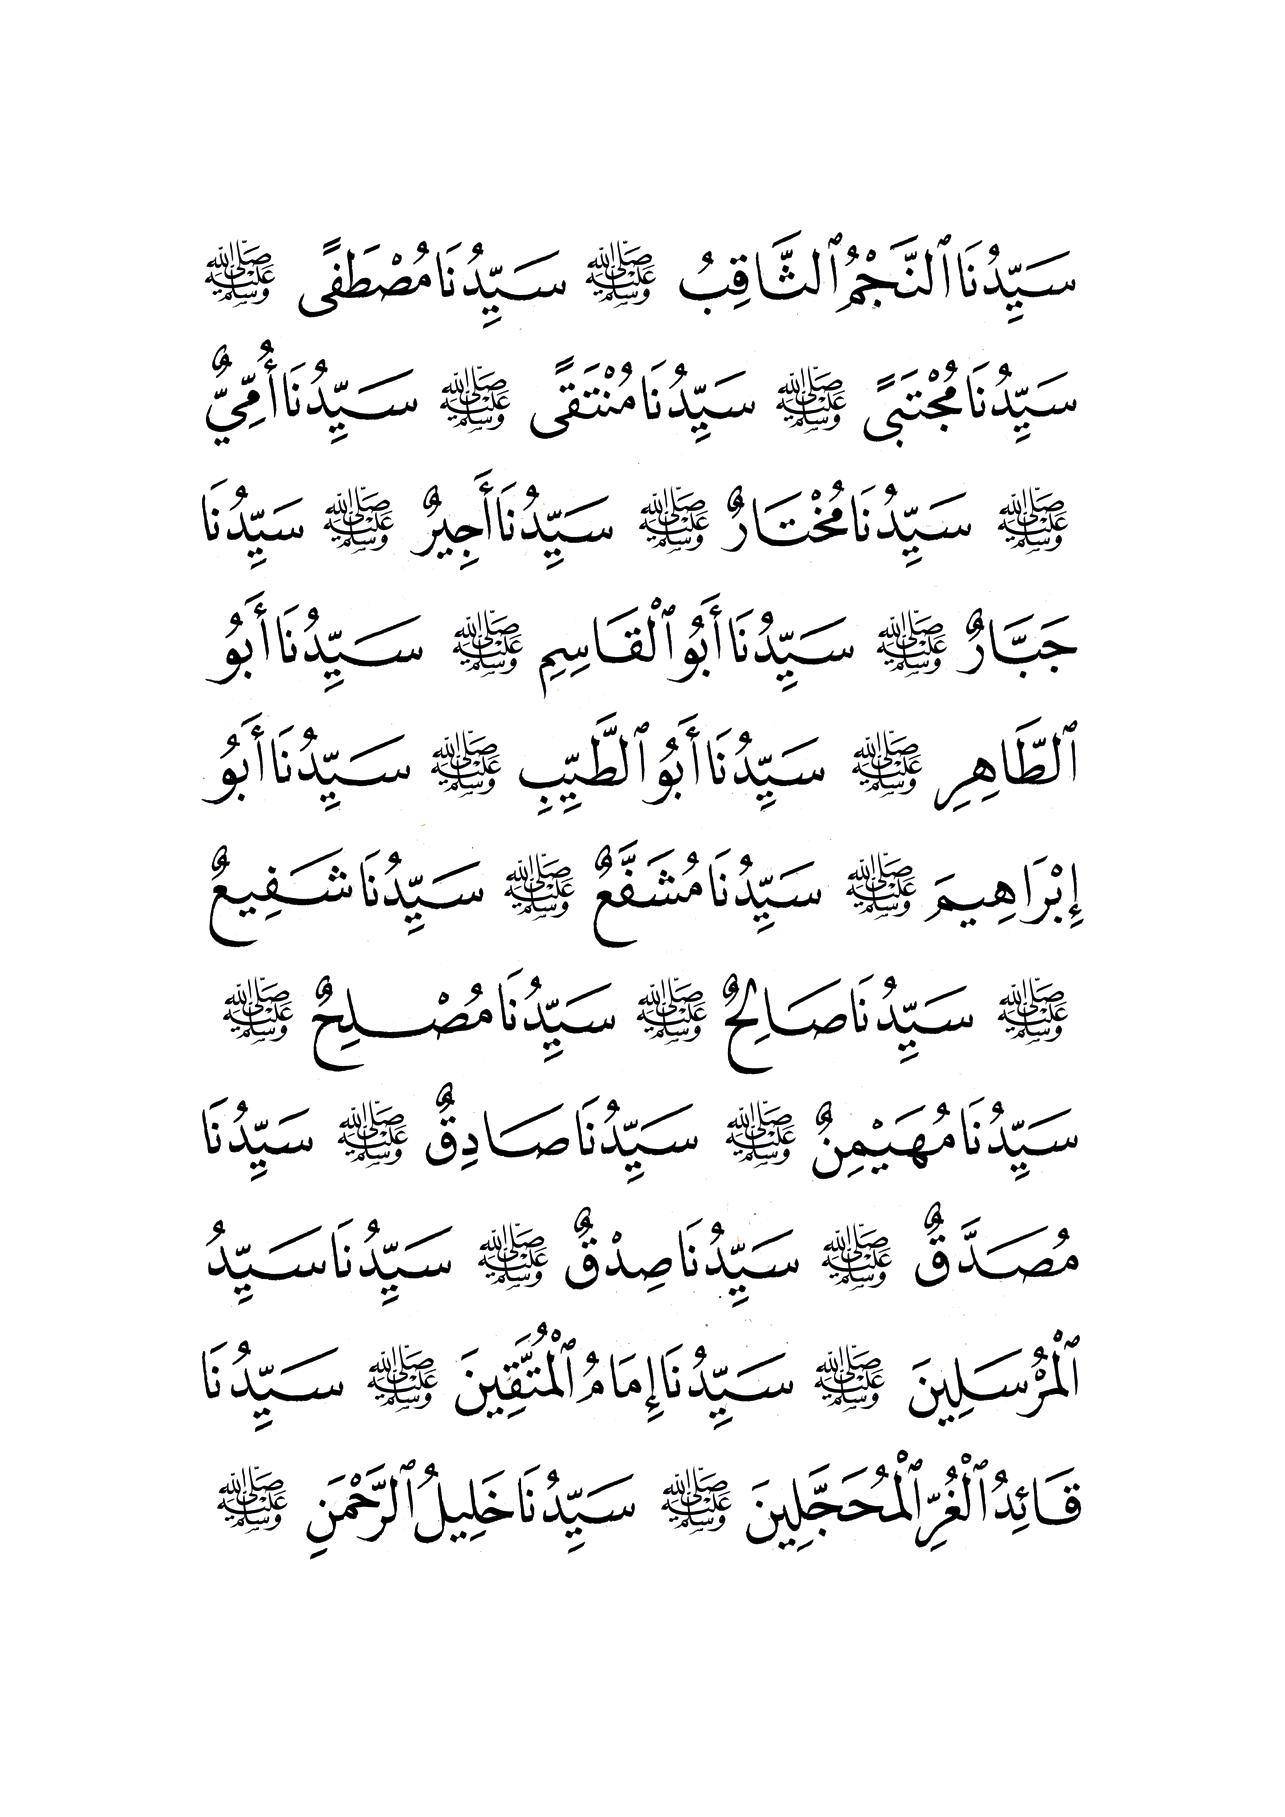 سَيِّدُنَا ٱلنَّجْمُ ٱلثَّاقِبُ ﷺ سَيِّدُنَا مُصْطَفًى ﷺ
سَيِّدُنَا مُجْتَبًى ﷺ سَيِّدُنَا مُنْتَقًى ﷺ سَيِّدُنَا أُمِّيٌّ
ﷺ سَيِّدُنَا مُخْتَارٌ ﷺ سَيِّدُنَا أَجِيرٌ ﷺ سَيِّدُنَا
جَبَّارٌ ﷺ سَيِّدُنَا أَبُو ٱلْقَاسِمِ ﷺ سَيِّدُنَا أَبُو
ٱلطَّاهِرِ ﷺ سَيِّدُنَا أَبُو ٱلطَّيِّبِ ﷺ سَيِّدُنَا أَبُو
إِبْرَاهِيمَ ﷺ سَيِّدُنَا مُشَفَّعٌ ﷺ سَيِّدُنَا شَفِيعٌ
ﷺ سَيِّدُنَا صَالِحٌ ﷺ سَيِّدُنَا مُصْلِحٌ ﷺ
سَيِّدُنَا مُهَيْمِنٌ ﷺ سَيِّدُنَا صَادِقٌ ﷺ سَيِّدُنَا
مُصَدَّقٌ ﷺ سَيِّدُنَا صِدْقٌ ﷺ سَيِّدُنَا سَيِّدُ
ٱلْمُرْسَلِينَ ﷺ سَيِّدُنَا إِمَامُ ٱلْمُتَّقِينَ ﷺ سَيِّدُنَا
قَائِدُ ٱلْغُرِّ ٱلْمُحَجَّلِينَ ﷺ سَيِّدُنَا خَلِيلُ ٱلرَّحْمَنِ ﷺ